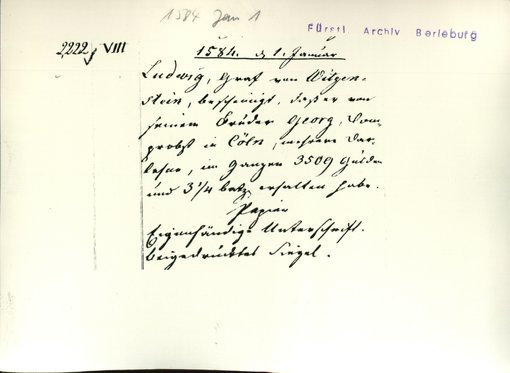 1584 Jan 1
Fürstl. Archiv Berleburg
2222 VIII
1584. d 1. Januar
Ludwig, Graf von Witgen-
stein, bescheinigt, daß er von
seinem Bruder Georg, Dom-
probst in Cöln, mehrere Dar-
lehne, im Ganzen 3509 Gulden
und 3 1/4 batz erhalten habe.
Papier
Eigenhändige Unterschrift.
beigedrucktes Siegel.